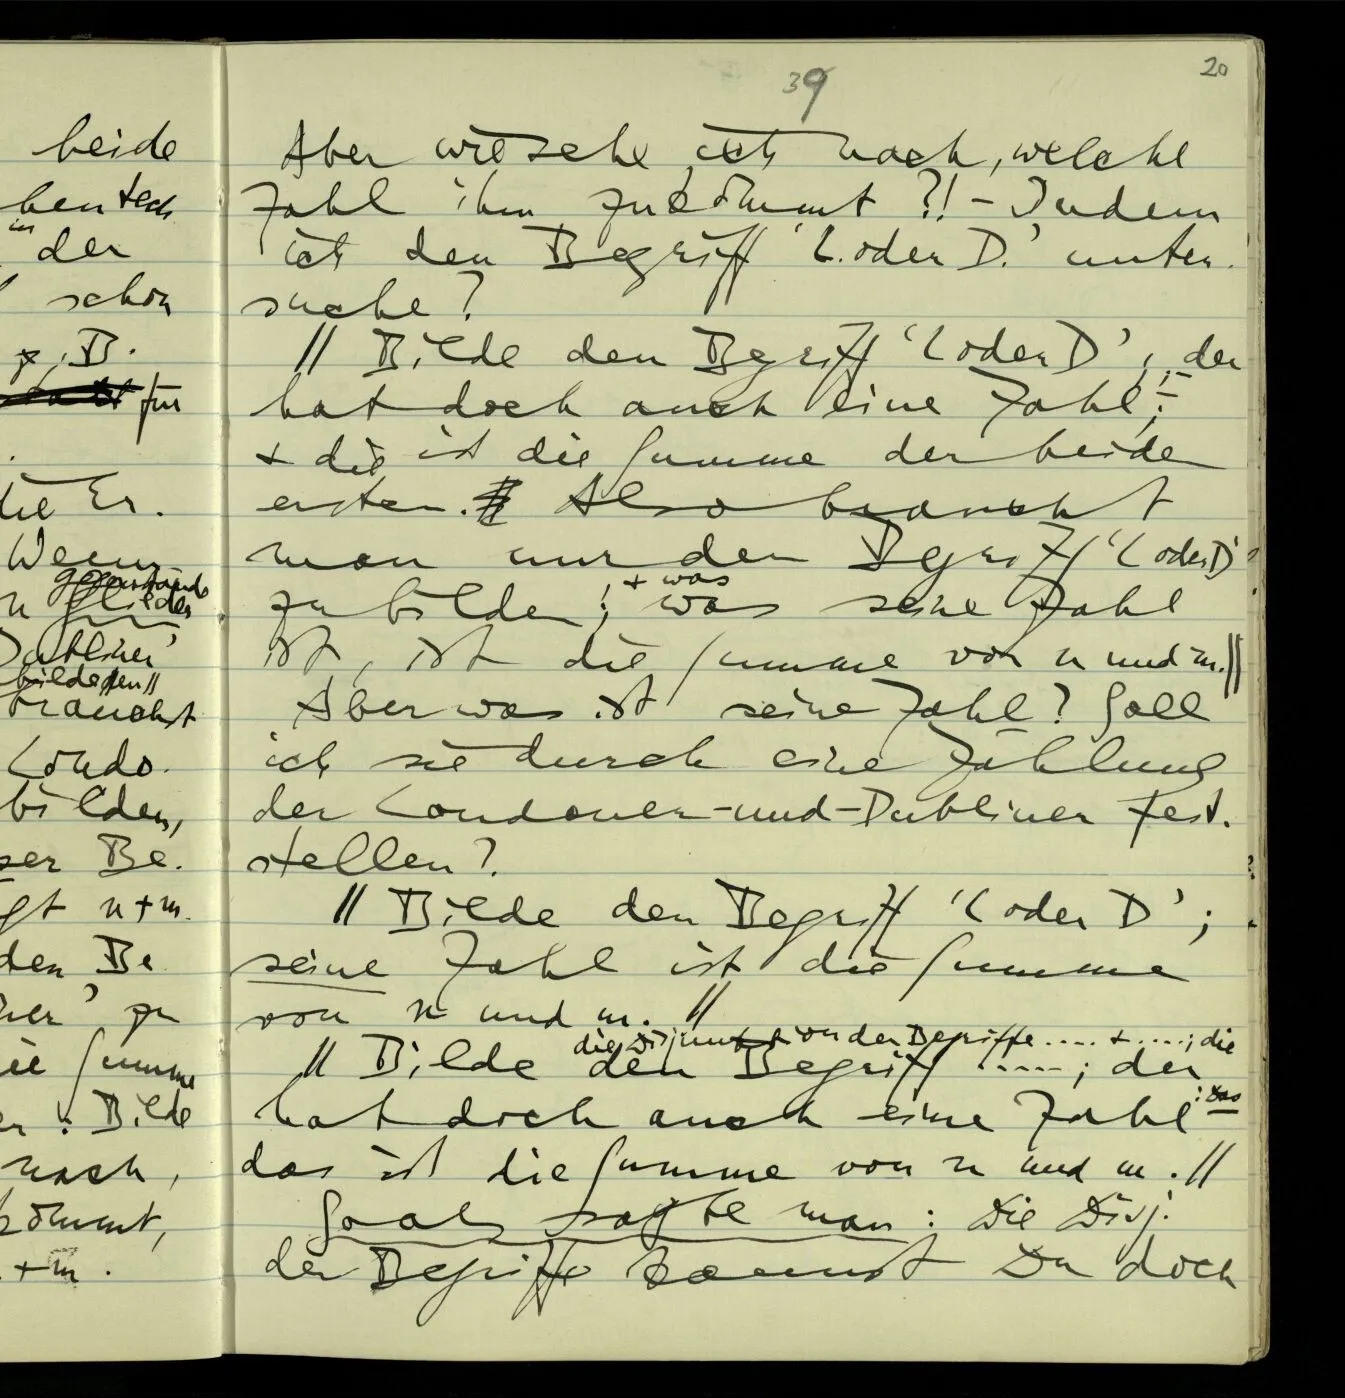 beide
der
schon
z.B.
für
Wenn
Gegenstände
Dubliner'
bilden //
braucht
Londo-
bilden,
ser Be-
gt n+m.
den Be
ner' zu
ie Summe
er: Bilde
nach,
kömmt,
+m.
39
20
Aber wie sehe ich nach, welche
Zahl ihm zukömmt ?! – Indem
ich den Begriff 'L. oder D.' unter-
suche?
// Bilde den Begriff 'L oder D', der
hat doch auch eine Zahl; –
+ die ist die Summe der beiden
ersten. Also braucht
man nur den Begriff 'L oder D'
+ was
zu bilden; was seine Zahl
ist, ist die Summe von n und m. //
Aber was ist seine Zahl? Soll
ich sie durch eine Zählung
der Londoner-und-Dubliner fest-
stellen?
// Bilde den Begriff 'L oder D';
seine Zahl ist die Summe
von n und m. //
die Disjunktion der Begriffe .... + ....; die
// Bilde den Begriff .....; der
hat doch auch eine Zahl : das
das ist die Summe von n und m. //
So als sagte man: Die Disj.
der Begriffe kannst Du doch